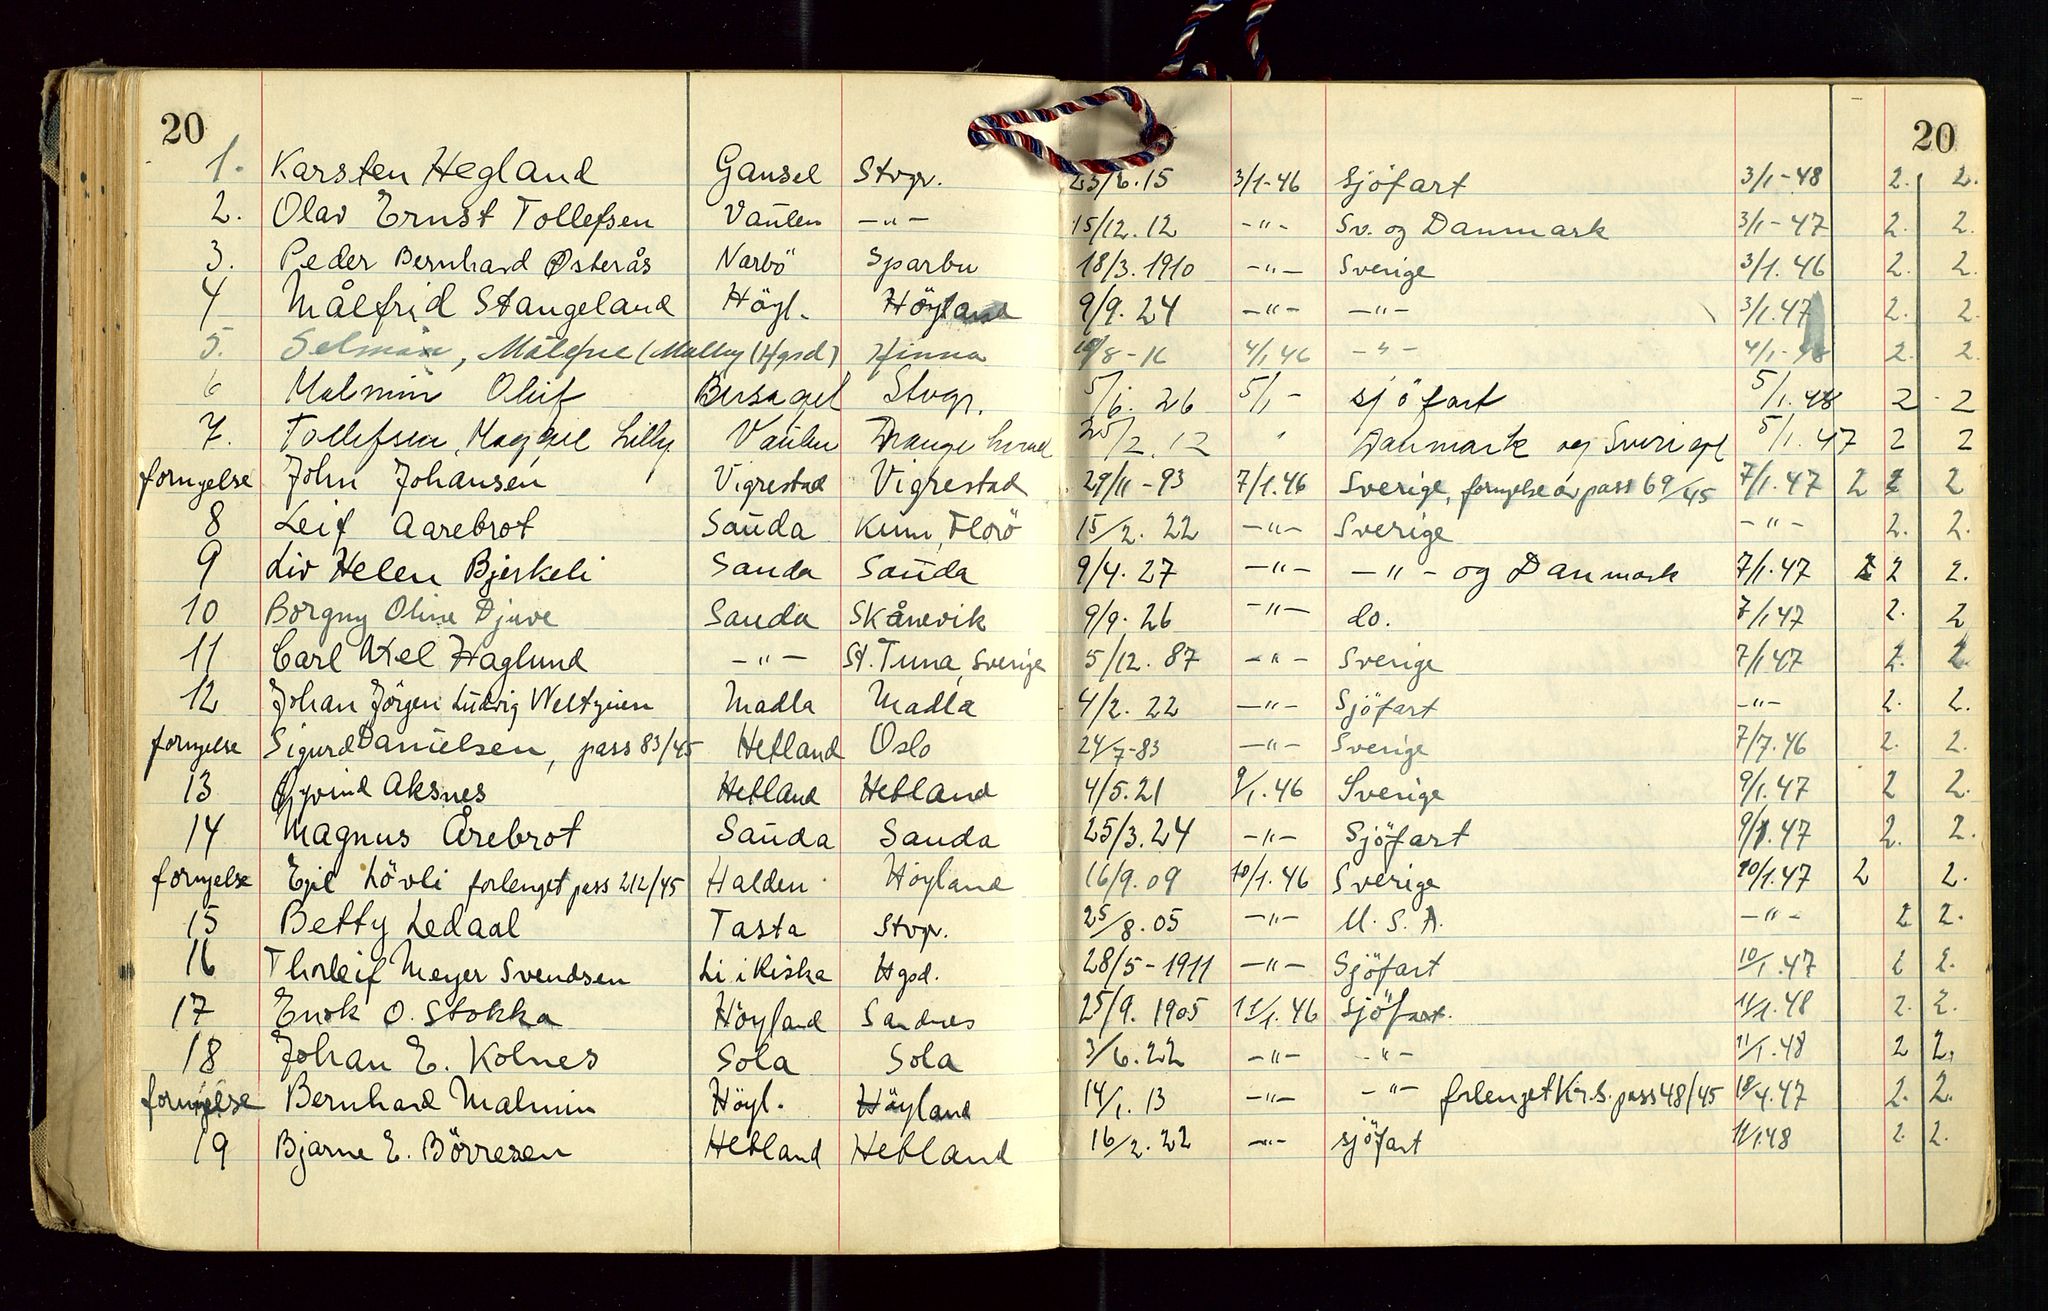 20 20
1. Karsten Hegland Gausel Stvgr. 23/6.15 3/1-46 Sjöfart 3/1-48 2. 2.
2. Olav Ernst Tollefsen Vaulen -"- 15/12.12 -"- Sv. og Danmark 3/1-47 2. 2.
3. Peder Bernhard Østerås Nærbö Sparbu 18/3.1910 -"- Sverige 3/1.46 2. 2.
4 Målfrid Stangeland Höyl. Höyland 9/9.24 -"- -"- 3/1.47 2. 2.
5. (Hgsd) Hinna /8-16 4/1.46 -"- 4/1-48 2. 2.
6 Malmin Oluf Bersagel Stvgr. 5/6.26 5/1- sjöfart 5/1.48 2 2
7. Tollefsen, Lilly Vaulen 25/2.12 " Danmark og Sverige 5/1.47 2 2
fornyelse John Johansen Vigrestad Vigrestad 29/11-93 7/1.46 Sverige, fornyelse av pass 69/45 7/1.47 2 2 2
8 Leif Aarebrot Sauda Kinn, Florö 15/2.22 -"- Sverige -"- 2. 2.
9 Liv Helen Bjerkeli Sauda Sauda 9/4.27 -"- -"- og Danmark 7/1.47 2 2 2.
10 Borgny Oline Djuve Sauda Skånevik 9/9.26 -"- do. 7/1.47 2. 2
11 Carl Axel Haglund -"- St. Tuna, Sverige 5/12.87 -"- Sverige 7/1.47 2. 2.
12 Johan Jörgen Ludvig Weltzien Madla Madla 4/2.22 -"- Sjöfart -"- 2. 2.
fornyelse Sigurd Danielsen, pass 83/45 Hetland Oslo 24/7-83 -"- Sverige 7/7.46 2. 2.
13 Øyvind Aksnes Hetland Hetland 4/5.21 9/1.46 Sverige 9/1.47 2 2.
14 Magnus Årebrot Sauda Sauda 25/3.24 -"- Sjöfart 9/1.47 2. 2.
fornyelse Egil Lövli forlenget pass 212/45 Halden Höyland 16/9.09 10/1.46 Sverige 10/1.47 2 2.
15 Betty Ledaal Tasta Stvgr. 25/8.05 -"- U.S.A. -"- 2 2.
16 Thorleif Meyer Svendsen Li i Riska Hgsd. 28/5-1911 -"- Sjöfart 10/1.47 2 2.
17 Enok O. Stokka Höyland Sandnes 25/9.1905 11/1.46 Sjöfart. 11/1.48 2. 2.
18 Johan E. Kolnes Sola Sola 3/6.22 -"- -"- 11/1.48 2 2.
fornyelse Bernhard Malmin Höyl. Höyland 14/1.13 -"- -"- forlenget Kr.S. pass 48/45 47 2. 2.
19 Bjarne E. Börresen Hetland Hetland 16/2.22 -"- sjöfart 11/1.48 2. 2.